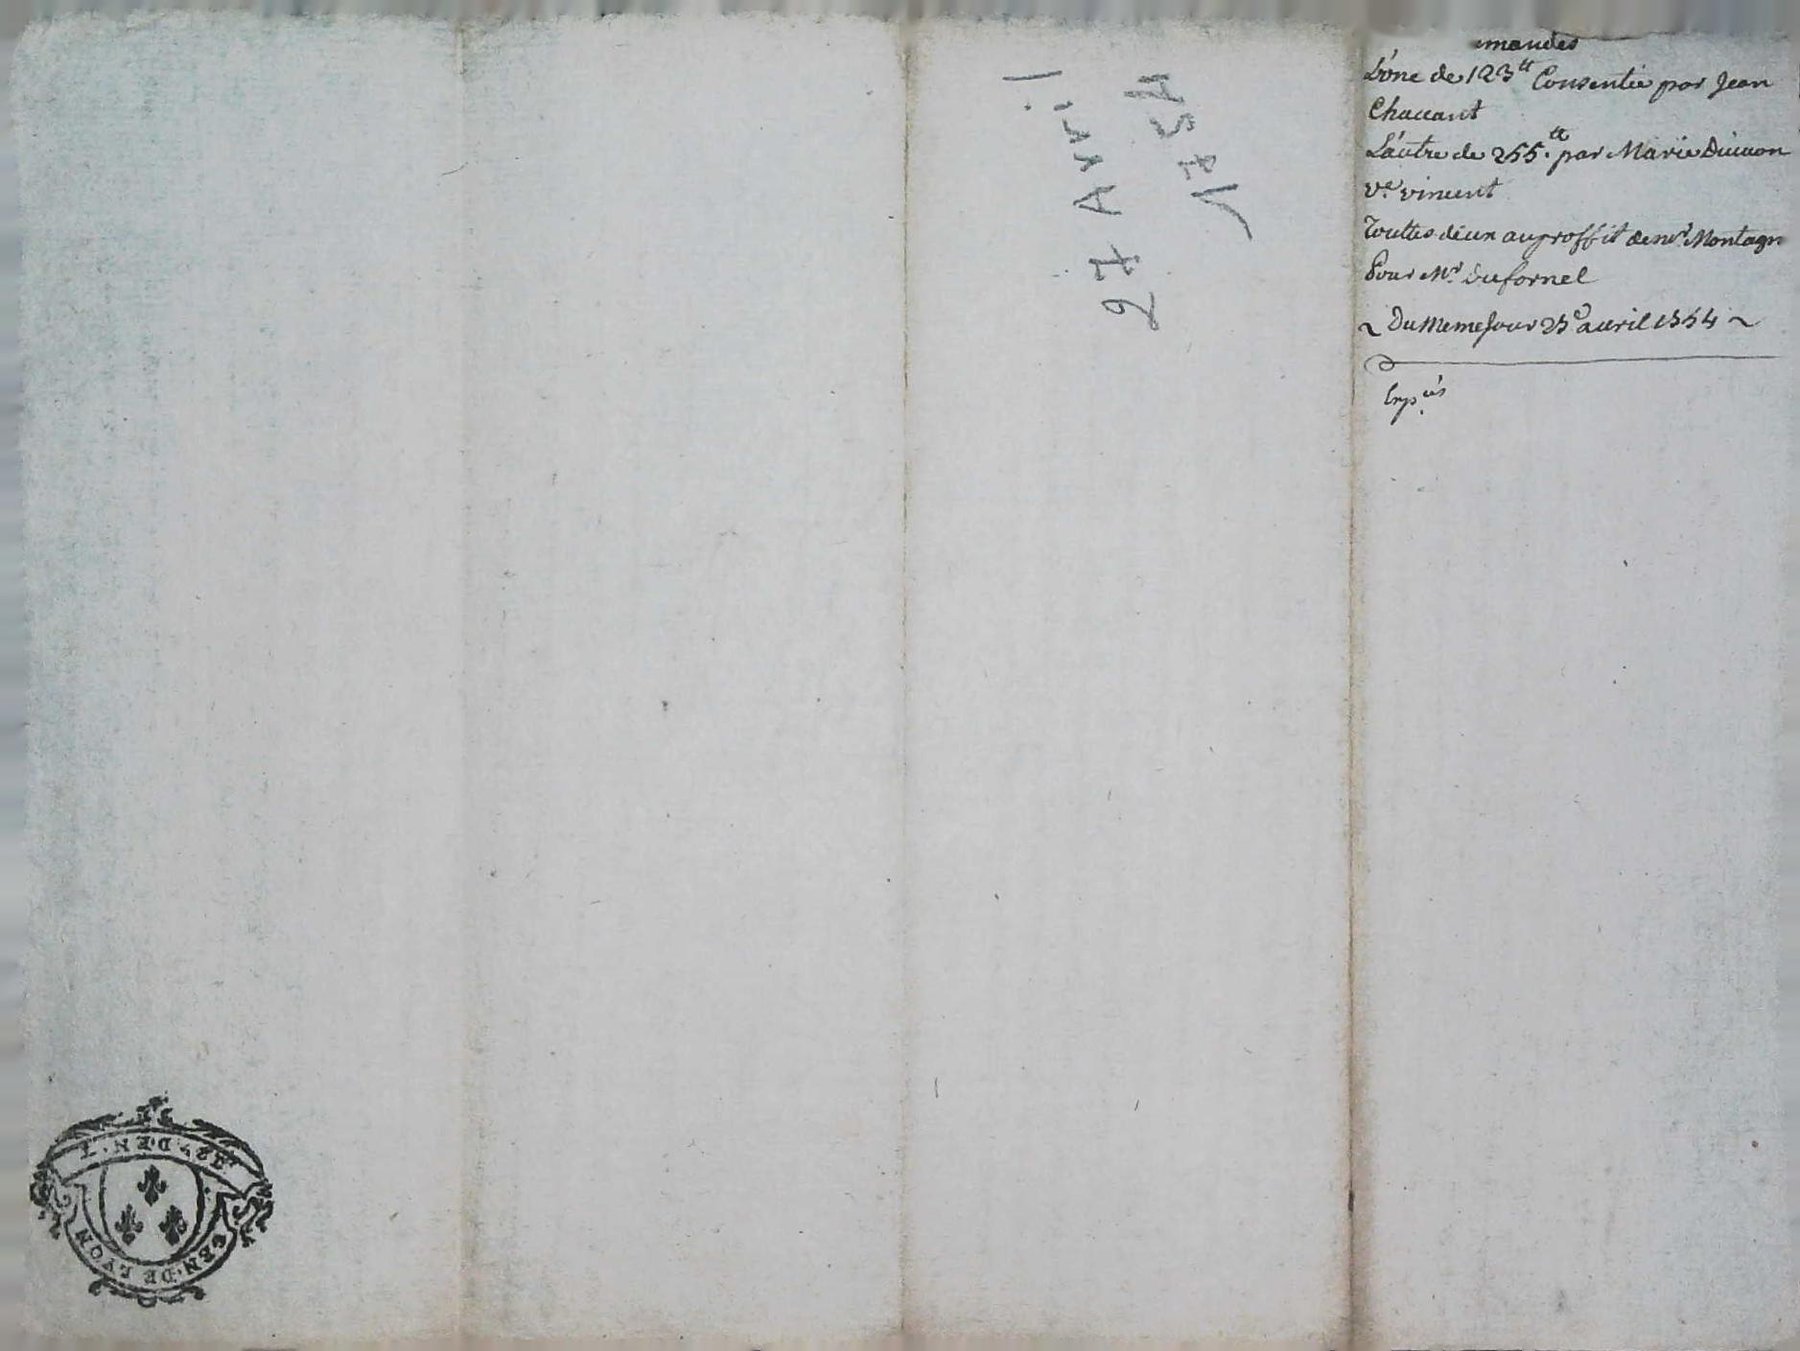 L'une de 123tt Consentie par Jean
Chavant
L'autre de 255.tt par Marie
Ve vincent
Touttes deux au proffit de mr Montagn
Pour Mr Dufornel
~ Du Meme Jour 25e avril 1754 ~
27 Avril
1754
GEN. DE LYON